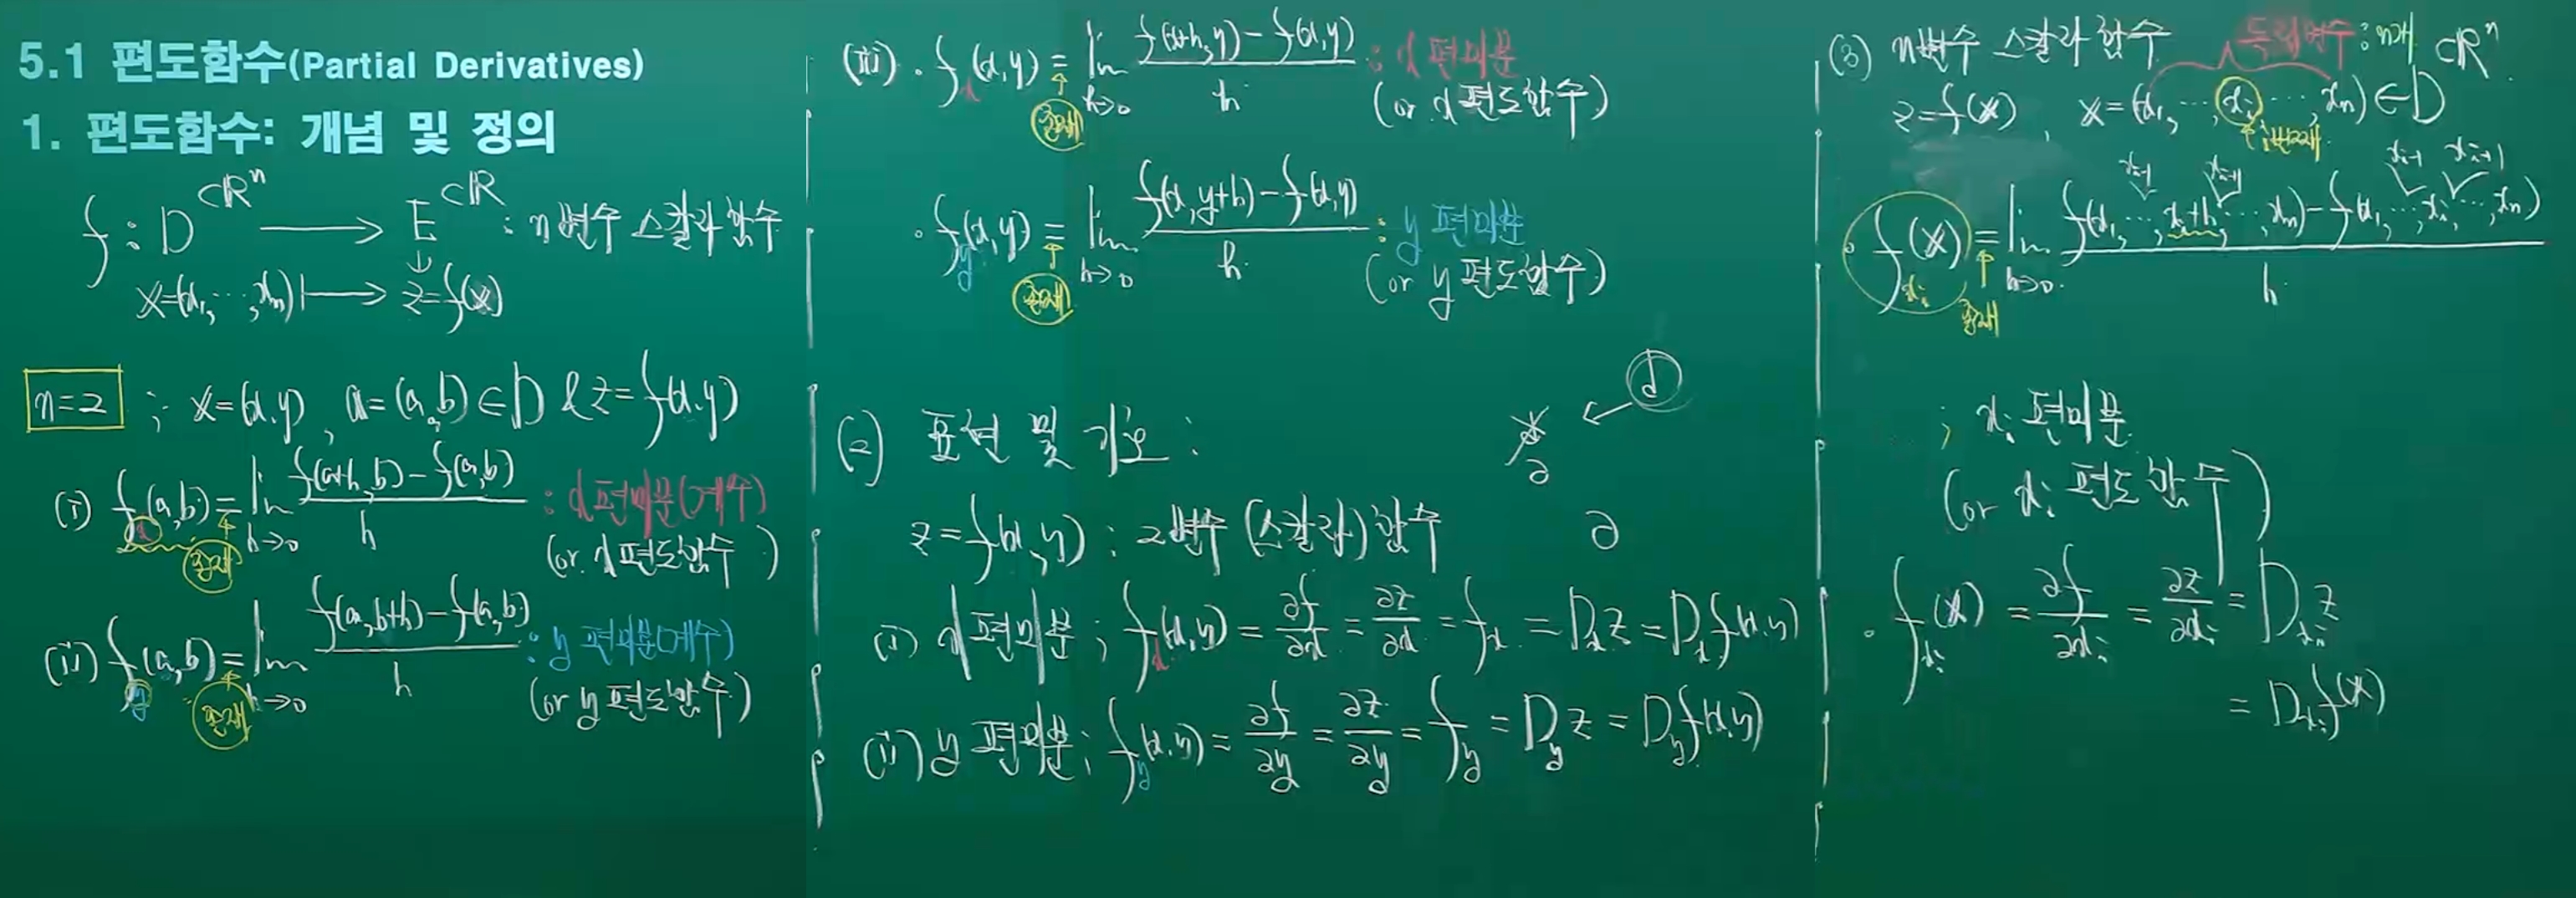 5.1 편도함수(Partial Derivatives)
1. 편도함수: 개념 및 정의
f : D ⊂ℝⁿ ⟶ E ⊂ℝ : n변수 스칼라 함수
𝕩=(x₁, ⋯, xₙ) ⟼ z=f(𝕩)
n=2 ; 𝕩=(x,y), 𝕒=(a,b)∈D & z=f(x,y)
(i) fₓ(a,b) = lim_{h→0} (f(a+h,b)−f(a,b))/h : x 편미분(계수)
존재
(or x 편도함수)
(ii) f_y(a,b) = lim_{h→0} (f(a,b+h)−f(a,b))/h : y 편미분(계수)
존재
(or y 편도함수)
(iii) · fₓ(x,y) = lim_{h→0} (f(x+h,y)−f(x,y))/h : x 편미분
존재
(or x 편도함수)
· f_y(x,y) = lim_{h→0} (f(x,y+h)−f(x,y))/h : y 편미분
존재
(or y 편도함수)
d
∂
(2) 표현 및 기호 :
z=f(x,y) : 2변수 (스칼라) 함수
∂
(i) x 편미분 ; fₓ(x,y) = ∂f/∂x = ∂z/∂x = fₓ = Dₓz = Dₓf(x,y)
(ii) y 편미분 ; f_y(x,y) = ∂f/∂y = ∂z/∂y = f_y = D_y z = D_y f(x,y)
(3) n변수 스칼라 함수 독립변수 : n개 ⊂ℝⁿ
z=f(𝕩), 𝕩=(x₁, ⋯, xᵢ, ⋯, xₙ)∈D
i번째
xᵢ₋₁ xᵢ₊₁ xᵢ₋₁ xᵢ₊₁
· f_{xᵢ}(𝕩) = lim_{h→0} (f(x₁, ⋯, xᵢ+h, ⋯, xₙ)−f(x₁, ⋯, xᵢ, ⋯, xₙ))/h
존재
; xᵢ 편미분
(or xᵢ 편도함수)
· f_{xᵢ}(𝕩) = ∂f/∂xᵢ = ∂z/∂xᵢ = D_{xᵢ}z
= D_{xᵢ}f(𝕩)